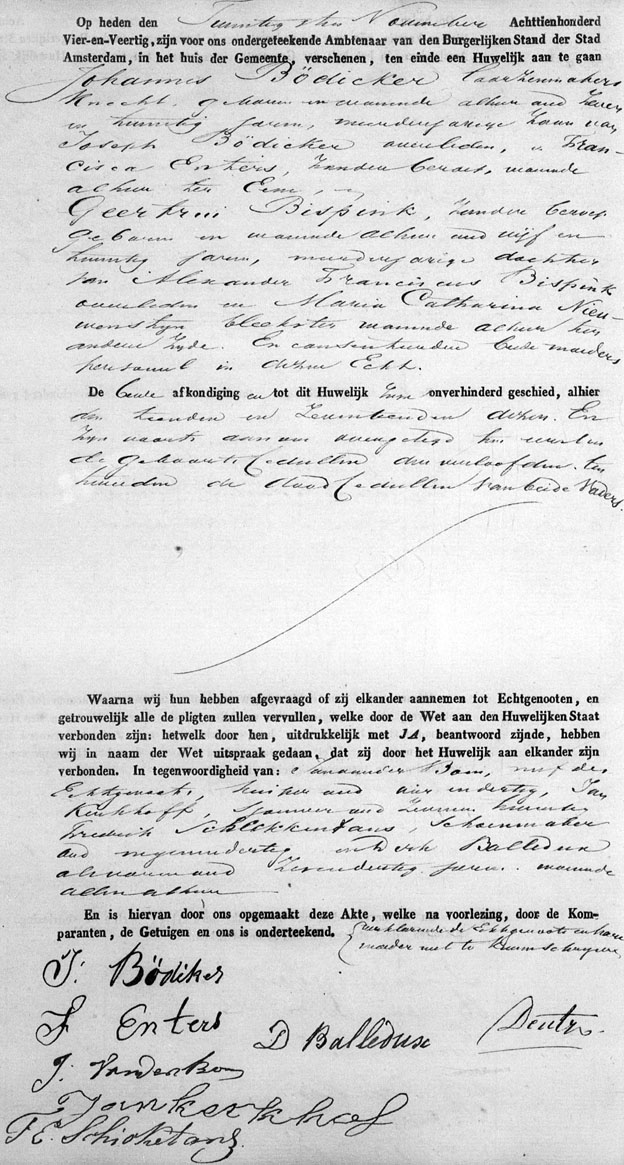 Op heden den Twintigsten November Achttienhonderd
Vier-en-Veertig, zijn voor ons ondergeteekende Ambtenaar van den Burgerlijken Stand der Stad
Amsterdam, in het huis der Gemeente, verschenen, ten einde een Huwelijk aan te gaan
Johannes Bödicker Laarzenmakers
Knecht, geboren en wonende alhier oud zeven
en twintig jaren, meerderjarige Zoon van
Joseph Bödicker overleden, en Fran-
cisca Enters, zonder beroep, wonende
alhier ter Eene, en
Geertrui Bispink, zonder beroep
geboren en wonende alhier oud vijf en
twintig jaren, meerderjarige dochter
van Alexander Franciscus Bispink
overleden en Maria Catharina Nieu-
bleekster wonende alhier ter
andere zijde. En consenteerden beide moeders
personeel in dezen Echt.
De beide afkondigingen tot dit Huwelijk zijn onverhinderd geschied, alhier
den tienden en zeventienden dezer. En
zijn voorts aan ons overgelegd
de geboorte Cedullen der verloofden. Ten
de dood Cedullen van beide Vaders.
Waarna wij hun hebben afgevraagd of zij elkander aannemen tot Echtgenooten, en
getrouwelijk alle de pligten zullen vervullen, welke door de Wet aan den Huwelijken Staat
verbonden zijn: hetwelk door hen, uitdrukkelijk met JA, beantwoord zijnde, hebben
wij in naam der Wet uitspraak gedaan, dat zij door het Huwelijk aan elkander zijn
verbonden. In tegenwoordigheid van: van der Bom, neef der
Echtgenoote, kuiper oud vier en dertig, Jan
Kerkhoff, oud zeven en twintig
Frederik Schickentans, Schoenmaker
oud negenendertig en Derk Balledux
oud zevenendertig jaren. wonende
allen alhier
En is hiervan door ons opgemaakt deze Akte, welke na voorlezing, door de Kom-
paranten, de Getuigen en ons is onderteekend. verklarende de Echtgenoote en hare
moeder niet te kunnen schrijven
J: Bödiker
F Enters D Balledux Deutz
J. Vanderbom
Jan kerkhof
F E. Schicketanz